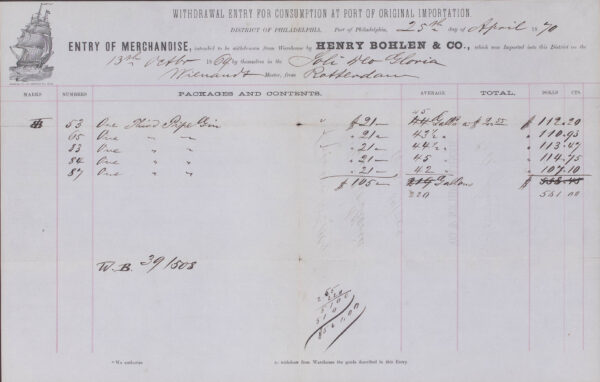 WITHDRAWAL ENTRY FOR CONSUMPTION AT PORT OF ORIGINAL IMPORTATION.
DISTRICT OF PHILADELPHIA, Port of Philadelphia, 25th day of April 1870
ENTRY OF MERCHANDISE, intended to be withdrawn from Warehouse by HENRY BOHLEN & CO., which was Imported into this District on the
13th Octbr 1869 by themselves in the Soli Deo Gloria
Wienands Master, from Rotterdam
MARKS NUMBERS PACKAGES AND CONTENTS. AVERAGE. TOTAL. DOLLS CTS.
45
53 One Third Pipe Gin $ 21— 44 Galls a $ 2.55 $ 112.20
65 One " " " 21— " 43½ " " 110.93
83 One " " " 21— " 44½ " " 113.47
84 One " " " 21— " 45 " " 114.75
87 One " " " 21— " 42 " " 107.10
$ 105— 219 Gallons $ 558.45
220 561 00
W.B. 39/508
2 55
220
5100
510
561,00
*We authorize to withdraw from Warehouse the goods described in this Entry.